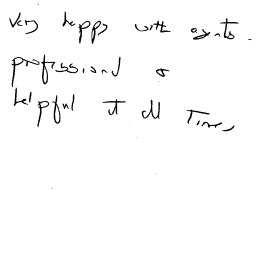 Very happy with agents.
professional &
helpful at all Times